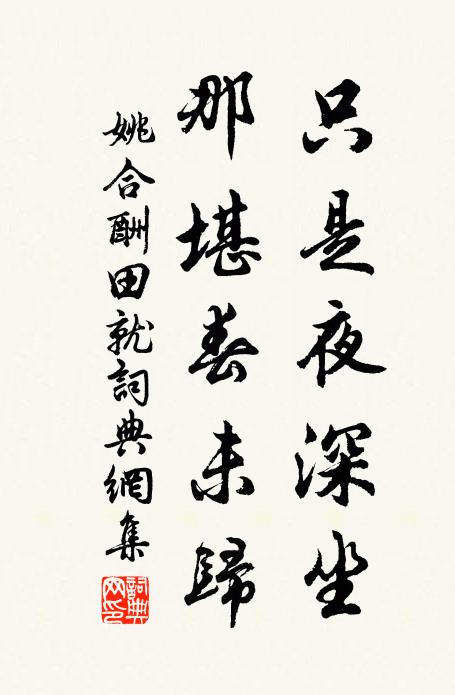 只是夜深坐
那堪春未歸
姚合酬田就詞典網集
詞典網印